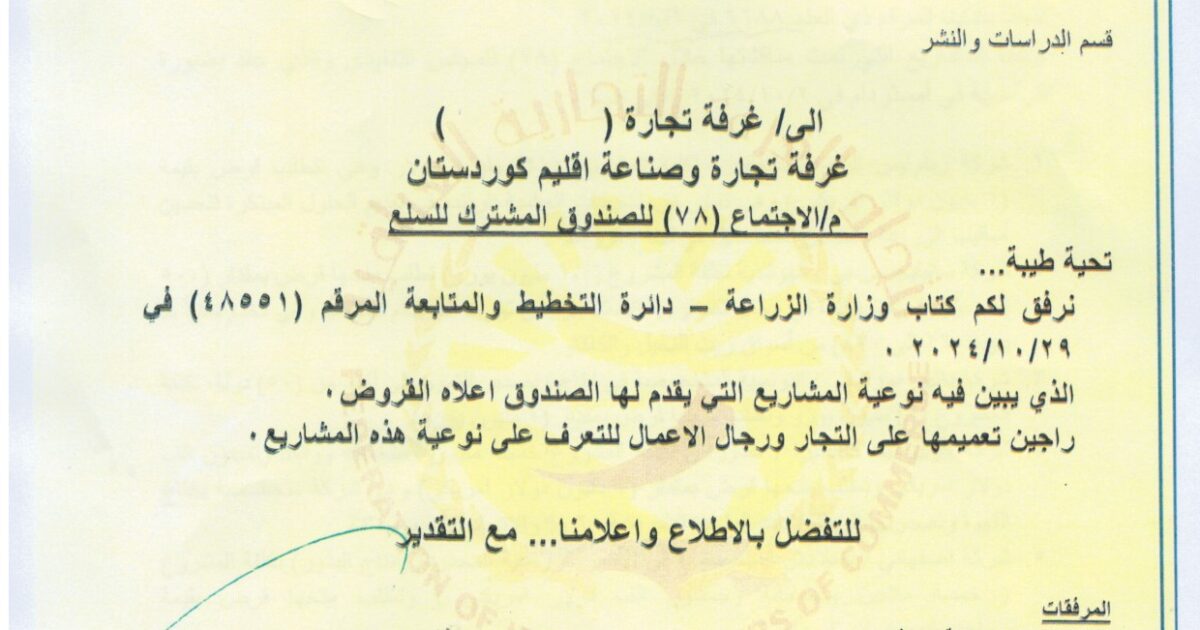 قسم الدراسات والنشر
الى/ غرفة تجارة ( )
غرفة تجارة وصناعة اقليم كوردستان
م/الاجتماع (٧٨) للصندوق المشترك للسلع
تحية طيبة...
نرفق لكم كتاب وزارة الزراعة – دائرة التخطيط والمتابعة المرقم (٤٨٥٥١) في
٢٠٢٤/١٠/٢٩ .
الذي يبين فيه نوعية المشاريع التي يقدم لها الصندوق اعلاه القروض .
راجين تعميمها على التجار ورجال الاعمال للتعرف على نوعية هذه المشاريع .
للتفضل بالاطلاع واعلامنا... مع التقدير
المرفقات